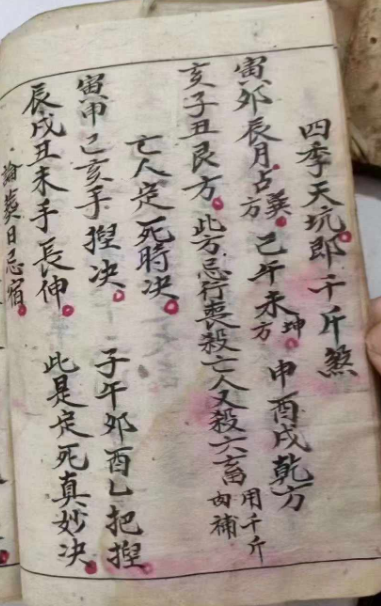 四季天坑郎千斤煞
寅卯辰月占巽方 己午未坤方 申酉戌乾方
亥子丑艮方 此方忌行喪殺亡人又殺六畜 用千斤由補
亡人定死時决
寅申己亥手揑决 子午卯酉乚把揑
辰戌丑未手長伸 此是定死真妙决
論葬日忌宿